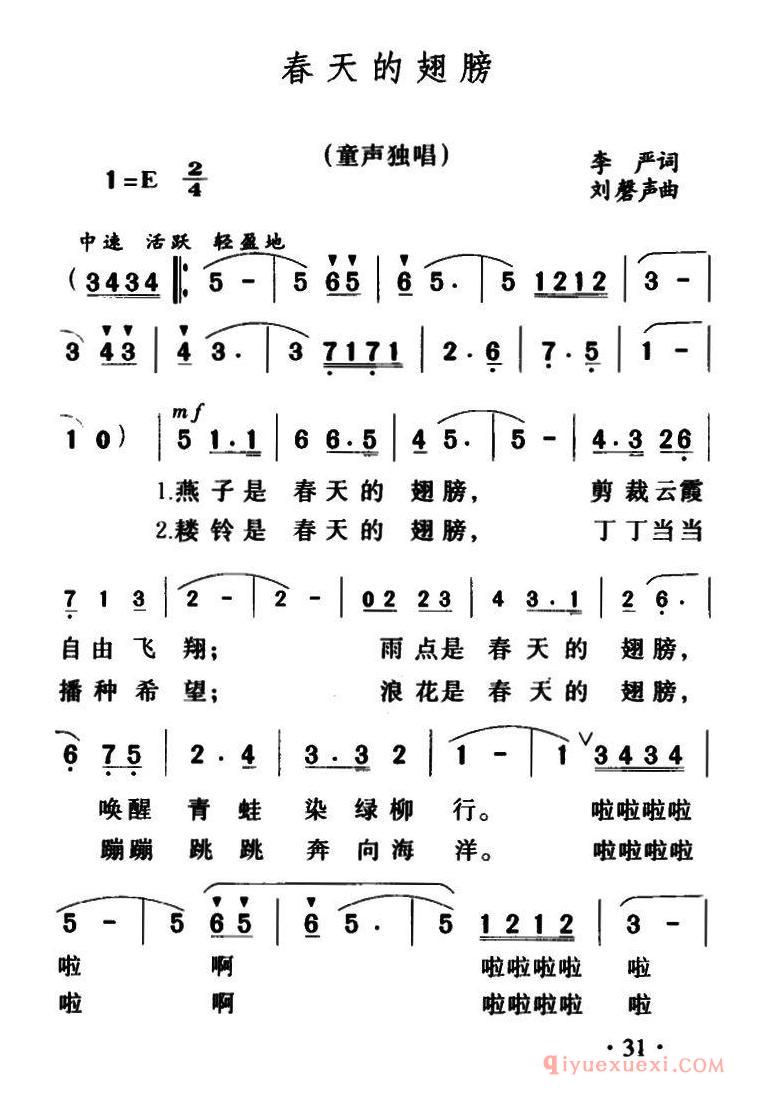 春天的翅膀
(童声独唱)
1=E 2/4
李 严词
刘磬声曲
中速 活跃 轻盈地
(3434 5 - 5 65 6 5. 5 1212 3 -
3 43 4 3. 3 7171 2.6 7.5 1 -
mf
1 0) 5 1.1 6 6.5 4 5. 5 - 4.3 26
1.燕子是 春天的 翅膀, 剪裁云霞
2.耧铃是 春天的 翅膀, 丁丁当当
7 1 3 2 - 2 - 02 23 4 3.1 2 6.
自由飞 翔; 雨点是 春天的 翅膀,
播种希 望; 浪花是 春天的 翅膀,
6 75 2.4 3.3 2 1 - 1 3434
唤醒 青蛙 染绿柳 行。 啦啦啦啦
蹦蹦 跳跳 奔向海 洋。 啦啦啦啦
5 - 5 65 6 5. 5 1212 3 -
啦 啊 啦啦啦啦 啦
啦 啊 啦啦啦啦 啦
·31·
qiyuexuexi.com